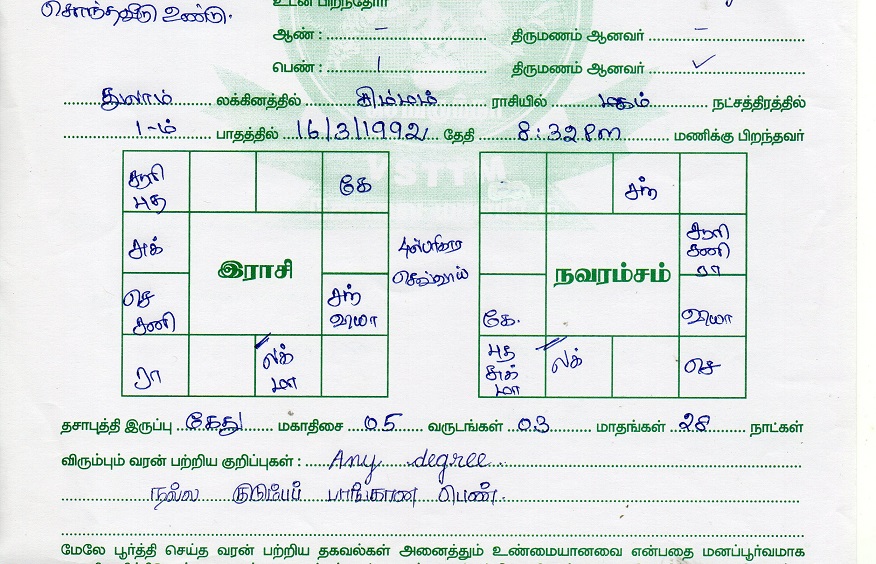 சொந்தவீடு உண்டு.
உடன் பிறந்தோர்
ஆண் : – திருமணம் ஆனவர் –
பெண் : 1 திருமணம் ஆனவர் ✓
துலாம் லக்கினத்தில் சிம்மம் ராசியில் மகம் நட்சத்திரத்தில்
1-ம் பாதத்தில் 16/3/1992 தேதி 8:32 Pm மணிக்கு பிறந்தவர்
சூரி புத
கே
சுக்
செ சனி
சந் வியா
ரா
லக் மா
இராசி
செவ்வாய்
சந்
சூரி சனி ரா
கே.
வியா
புத சுக் மா
லக்
செ
நவரம்சம்
தசாபுத்தி இருப்பு கேது மகாதிசை 05 வருடங்கள் 03 மாதங்கள் 28 நாட்கள்
விரும்பும் வரன் பற்றிய குறிப்புகள் : Any degree
நல்ல குடும்பப் பாங்கான பெண்.
மேலே பூர்த்தி செய்த வரன் பற்றிய தகவல்கள் அனைத்தும் உண்மையானவை என்பதை மனப்பூர்வமாக